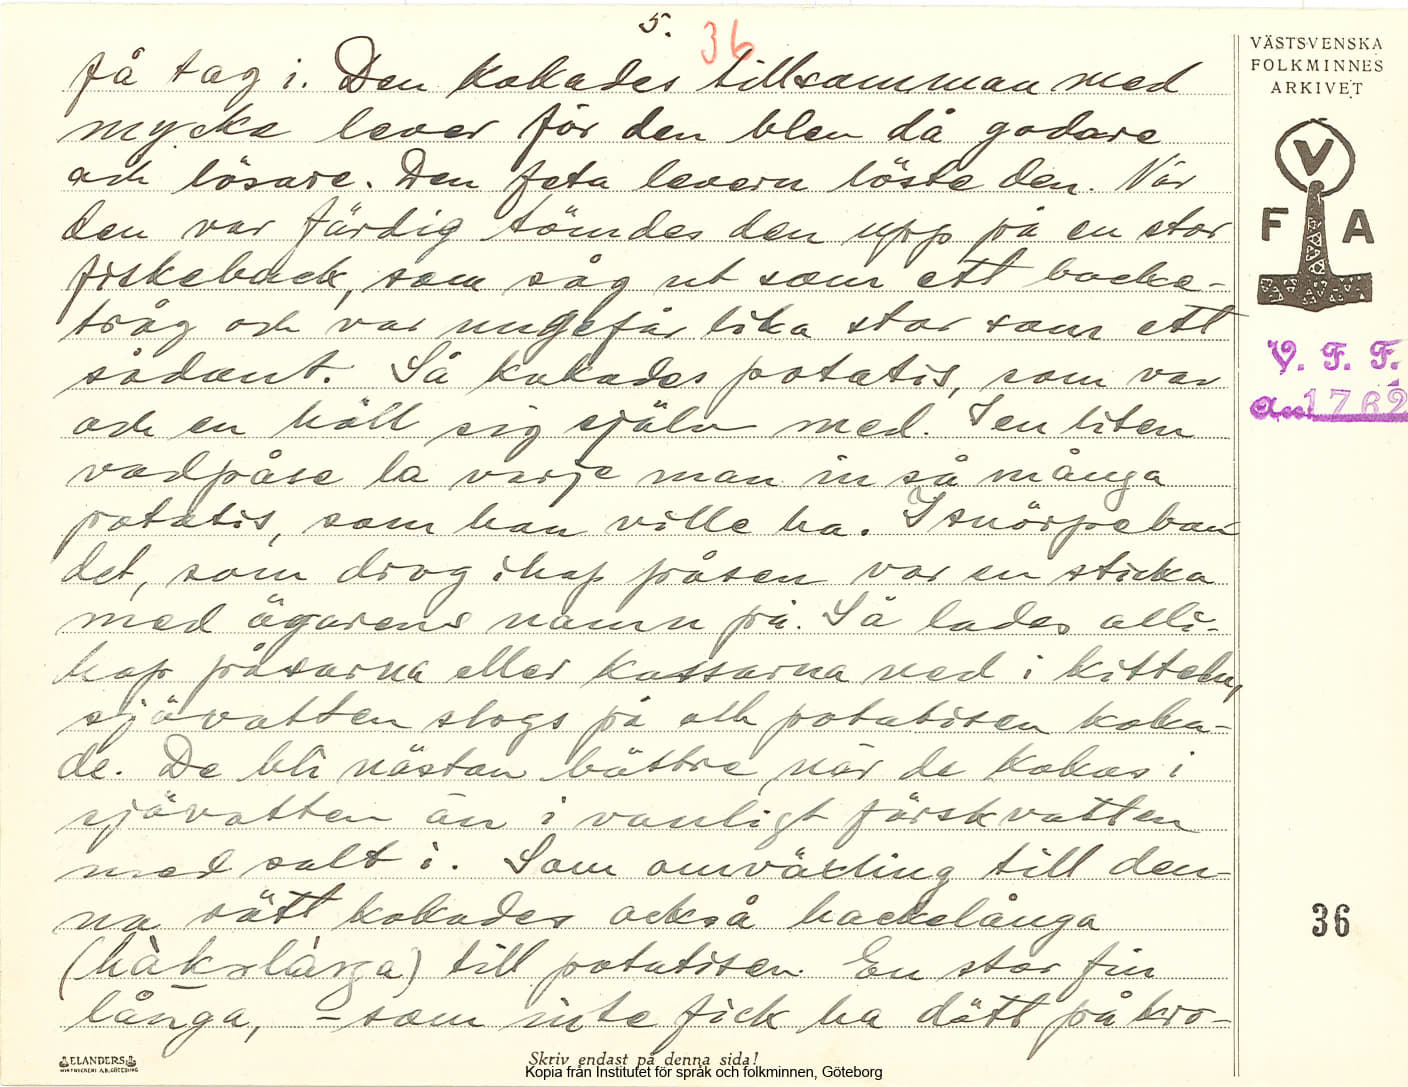 5.
36
få tag i. Den kokades tillsamman med
mycke lever för den blev då godare
och lösare. Den feta levern löste den. När
den var färdig tömdes den upp på en stor
fiskeback, som såg ut som ett backe-
tråg och var ungefär lika stor som ett
sådant. Så kokades potatis, som var
och en höll sig själv med. I en liten
vadpåse la varje man in så många
potatis, som han ville ha. I snörpeban
det, som drog ihop påsen var en sticka
med ägarens namn på. Så lades alli-
hop påsarna eller kassarna ned i kitteln,
sjövatten slogs på och potatisen koka-
de. De bli nästan bättre när de kokas i
sjövatten än i vanligt färskvatten
med salt i. Som omväxling till den-
na rätt kokades också hackelånga
till potatisen. En stor fin
långa, – som inte fick ha dött på kro-
VÄSTSVENSKA
FOLKMINNES
ARKIVET
V
F A
V. F. F.
1762
36
ELANDERS
Skriv endast på denna sida!
Kopia från Institutet för språk och folkminnen, Göteborg